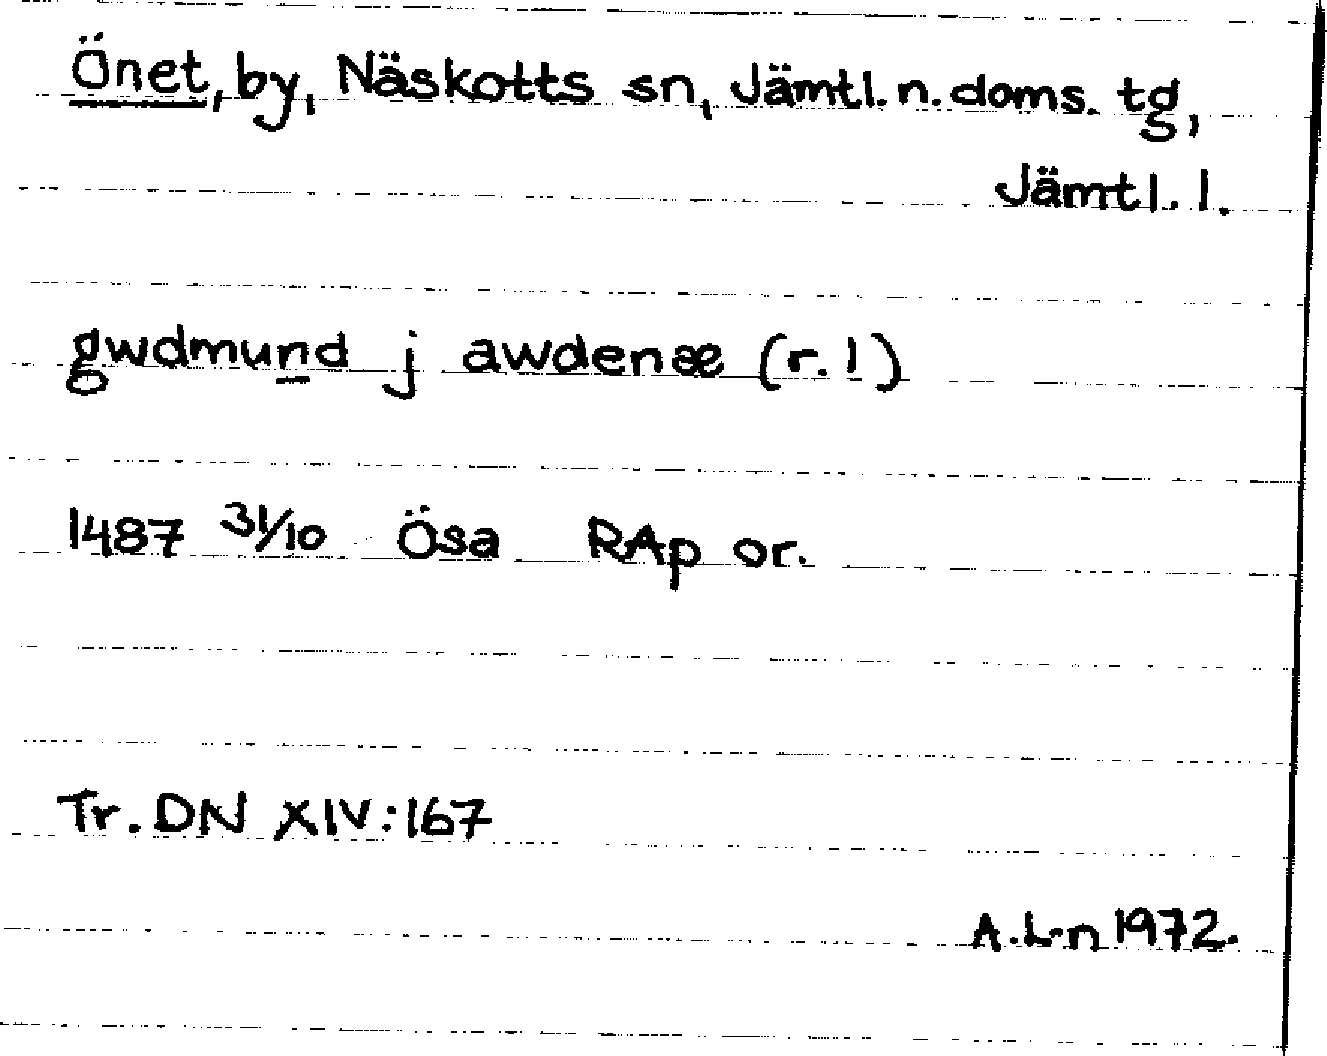 Önet, by, Näskotts sn, Jämtl. n. doms. tg,
Jämtl. l.
gwdmund j awdenæ (r. 1)
1487 31/10 Ösa RAp or.
Tr. DN XIV:167
A.L-n 1972.